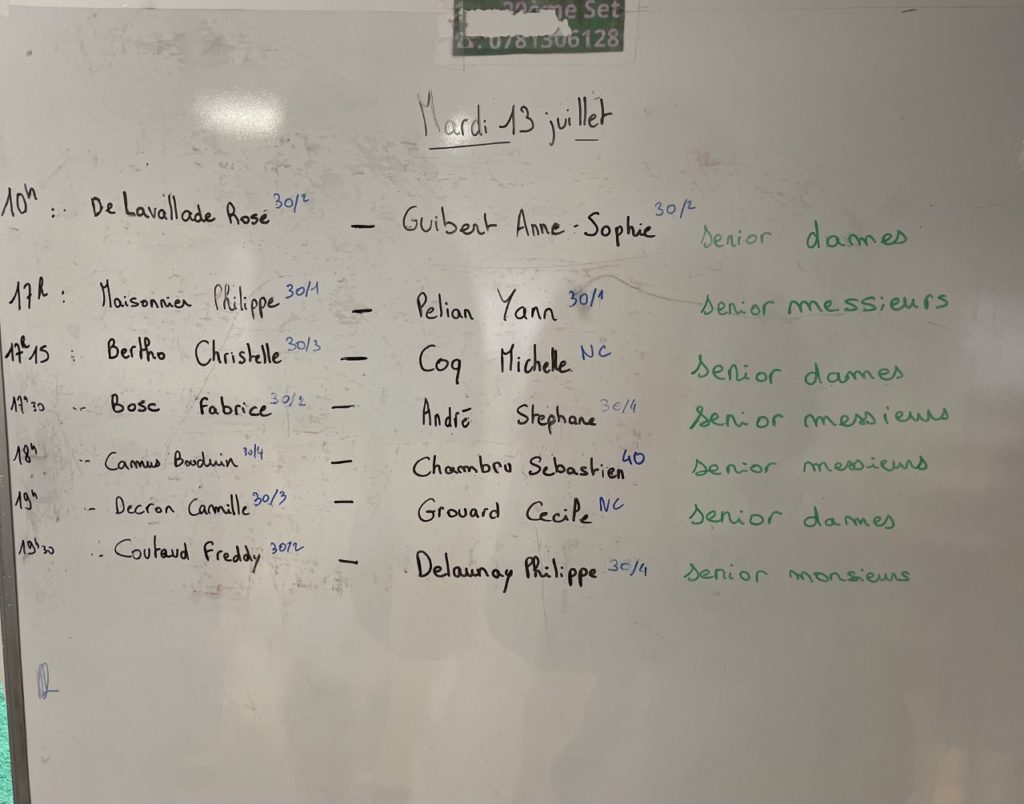 ème Set
: 0781306128
Mardi 13 juillet
10h : De Lavallade Rose 30/2 — Guibert Anne-Sophie 30/2 Senior dames
17h : Maisonnier Philippe 30/1 — Pelian Yann 30/1 Senior messieurs
17h15 : Bertho Christelle 30/3 — Coq Michelle NC Senior dames
17h30 : Bosc Fabrice 30/2 — André Stephane 30/4 Senior messieurs
18h : Camus Bauduin 30/4 — Chambru Sebastien 40 Senior messieurs
19h : Decron Camille 30/3 — Grouard Cecile NC Senior dames
19h30 : Coutaud Freddy 30/2 — Delaunay Philippe 30/4 Senior monsieurs